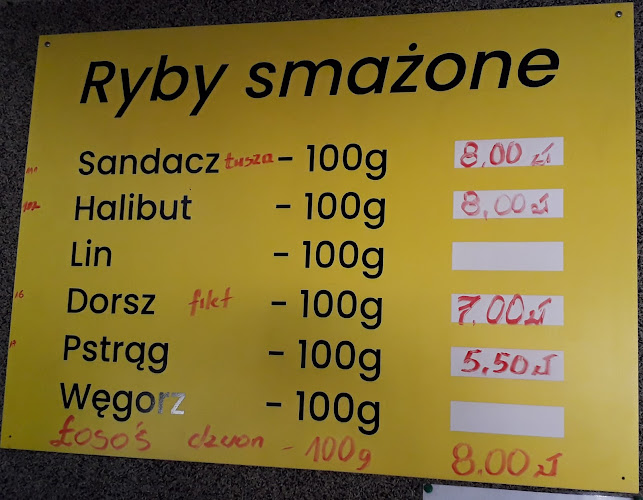 Ryby smażone
Sandacz tusza - 100g 8.00 zł
Halibut - 100g 8,00 zł
Lin - 100g
Dorsz filet - 100g 7.00 zł
Pstrąg - 100g 5,50 zł
Węgorz - 100g
Łosoś dzwon - 100g 8.00 zł